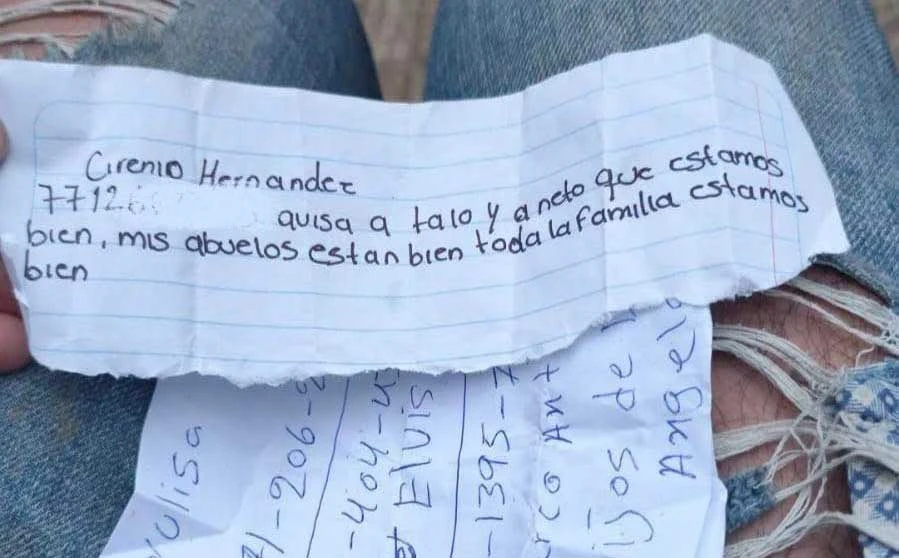 Cirenio Hernandez
7712
avisa a talo y a neto que estamos
bien, mis abuelos estan bien toda la familia estamos
bien
ulisa
1-206-9
-404-4
Elvis
-1395-7
rco Ant
ijos de
Angel